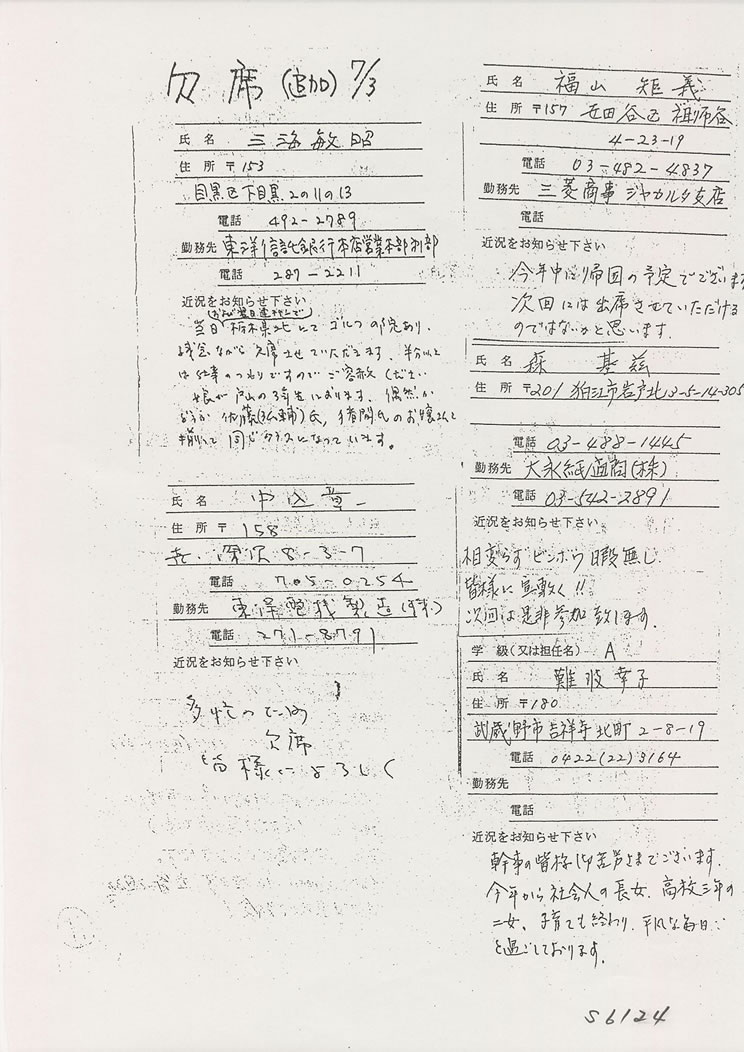 欠席(追加) 7/3
氏名 三海敏昭
住所 〒153
目黒区下目黒2の11の13
電話 492-2789
勤務先 東洋信託銀行本店営業本部
電話 287-2211
近況をお知らせ下さい
当日栃木県北にてゴルフの
残念ながら欠席させていただきます。半分以上
は仕事のつもりですのでご容赦ください
娘が戸山の3年生におります。偶然か
どうか佐藤 氏, 氏のお嬢さんと
揃って同じクラスになっています。
氏名 中込
住所 〒158
深沢8-3-7
電話 705-0254
勤務先 東洋電機製造(株)
電話 271-8791
近況をお知らせ下さい
多忙の
欠席
皆様によろしく
氏名 福山矩義
住所 〒157 世田谷区祖師谷
4-23-19
電話 03-482-4837
勤務先 三菱商事ジャカルタ支店
電話
近況をお知らせ下さい
今年中には帰国の予定でございます
次回には出席させていただける
のではないかと思います.
氏名 森 基茲
住所 〒201 狛江市岩戸北13-5-14-305
電話 03-488-1445
勤務先 大永紙通商(株)
電話 03-542-2891
近況をお知らせ下さい
相変らずビンボウ暇無し
皆様に宜敷く!!
次回は是非参加致します.
学級(又は担任名) A
氏名 難波幸子
住所 〒180
武蔵野市吉祥寺北町2-8-19
電話 0422(22)3164
勤務先
電話
近況をお知らせ下さい
幹事の皆様御苦労さまでございます.
今年から社会人の長女, 高校三年の
二女。子育ても終わり, 平凡な毎日
を過ごしております.
S6124